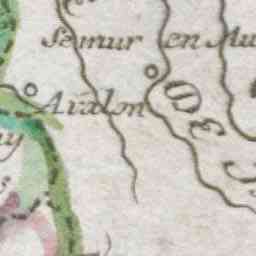 Semur en Au
Avalon
DE